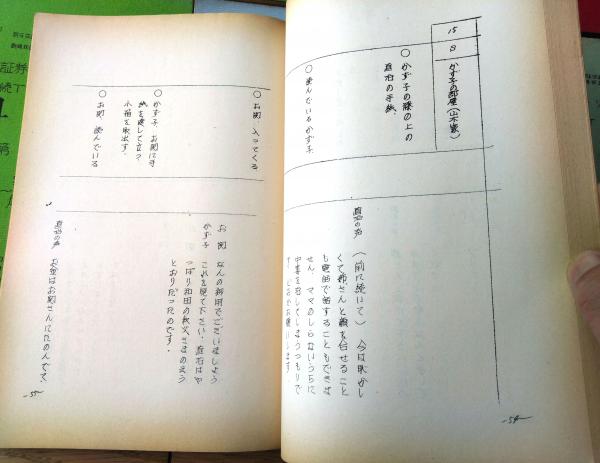 15
8
かず子の部屋(山本家)
○ かず子の膝の上の
直治の手紙.
○ 読んでいるかず子
直治の声 (前に続いて) 今は恥かし
くて姉さんと顔を合せること
も電話で話することもできま
せん. ママのしらないうちに
-54-
○ お関 入ってくる
○ かず子、お関に手
紙を渡して立つ
小箱を取出す.
○ お関、読んでいる
お関 なんの御用でございましよう
かず子 これを見て下さい. 直治はや
っぱり和田の秋父さまのえう
とおりだったのです.
直治の声 お金はお関さんにたのんで下
-55-
証券